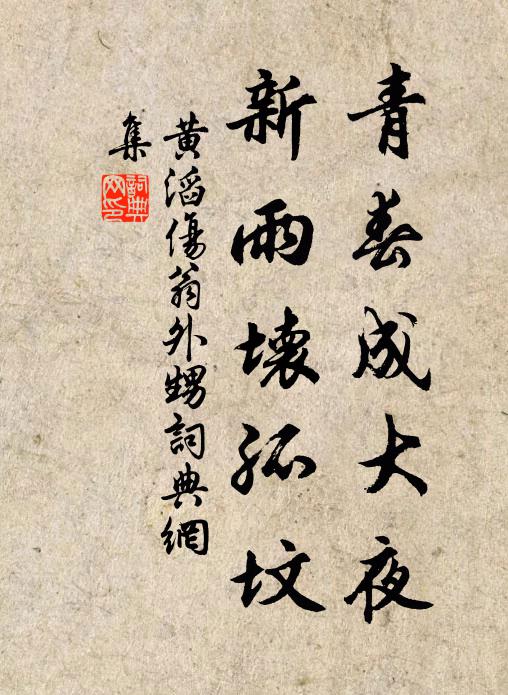 青春成大夜
新雨壞孤墳
黃滔傷翁外甥詞典網
集
詞典
网印